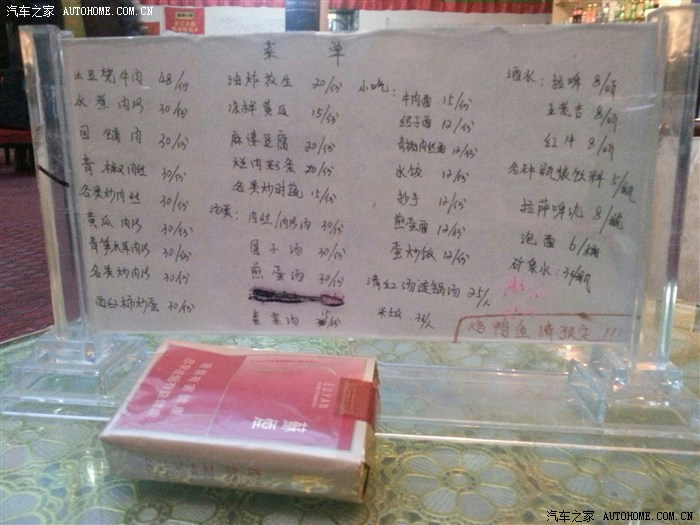 汽车之家 AUTOHOME.COM.CN
菜单
土豆烧牛肉 48/份
水煮肉片 30/份
回锅肉 30/份
青椒肉丝 30/份
各类炒肉丝 30/份
黄瓜肉片 30/份
青笋木耳肉片 30/份
各类炒肉片 30/份
西红柿炒蛋 30/份
油炸花生 20/份
凉拌黄瓜 15/份
麻婆豆腐 20/份
烂肉粉条 20/份
各类炒时蔬 15/份
汤类:肉丝/肉片汤 30/份
圆子汤 30/份
煎蛋汤 30/份
素菜汤
小吃:
牛肉面 15/份
绍子面 12/份
青椒肉丝面 12/份
水饺 12/份
抄手 12/份
煎蛋面 12/份
蛋炒饭 12/份
清红汤连锅汤 25/人
米饭 3/人
酒水:拉啤 8/听
王老吉 8/听
红牛 8/听
各种瓶装饮料 5/瓶
拉萨啤酒 8/瓶
泡面 6/桶
矿泉水:3/瓶
鸡鸭鱼请预定!!!
蘇煙
SUYAN
汽车之家 AUTOHOME.COM.CN